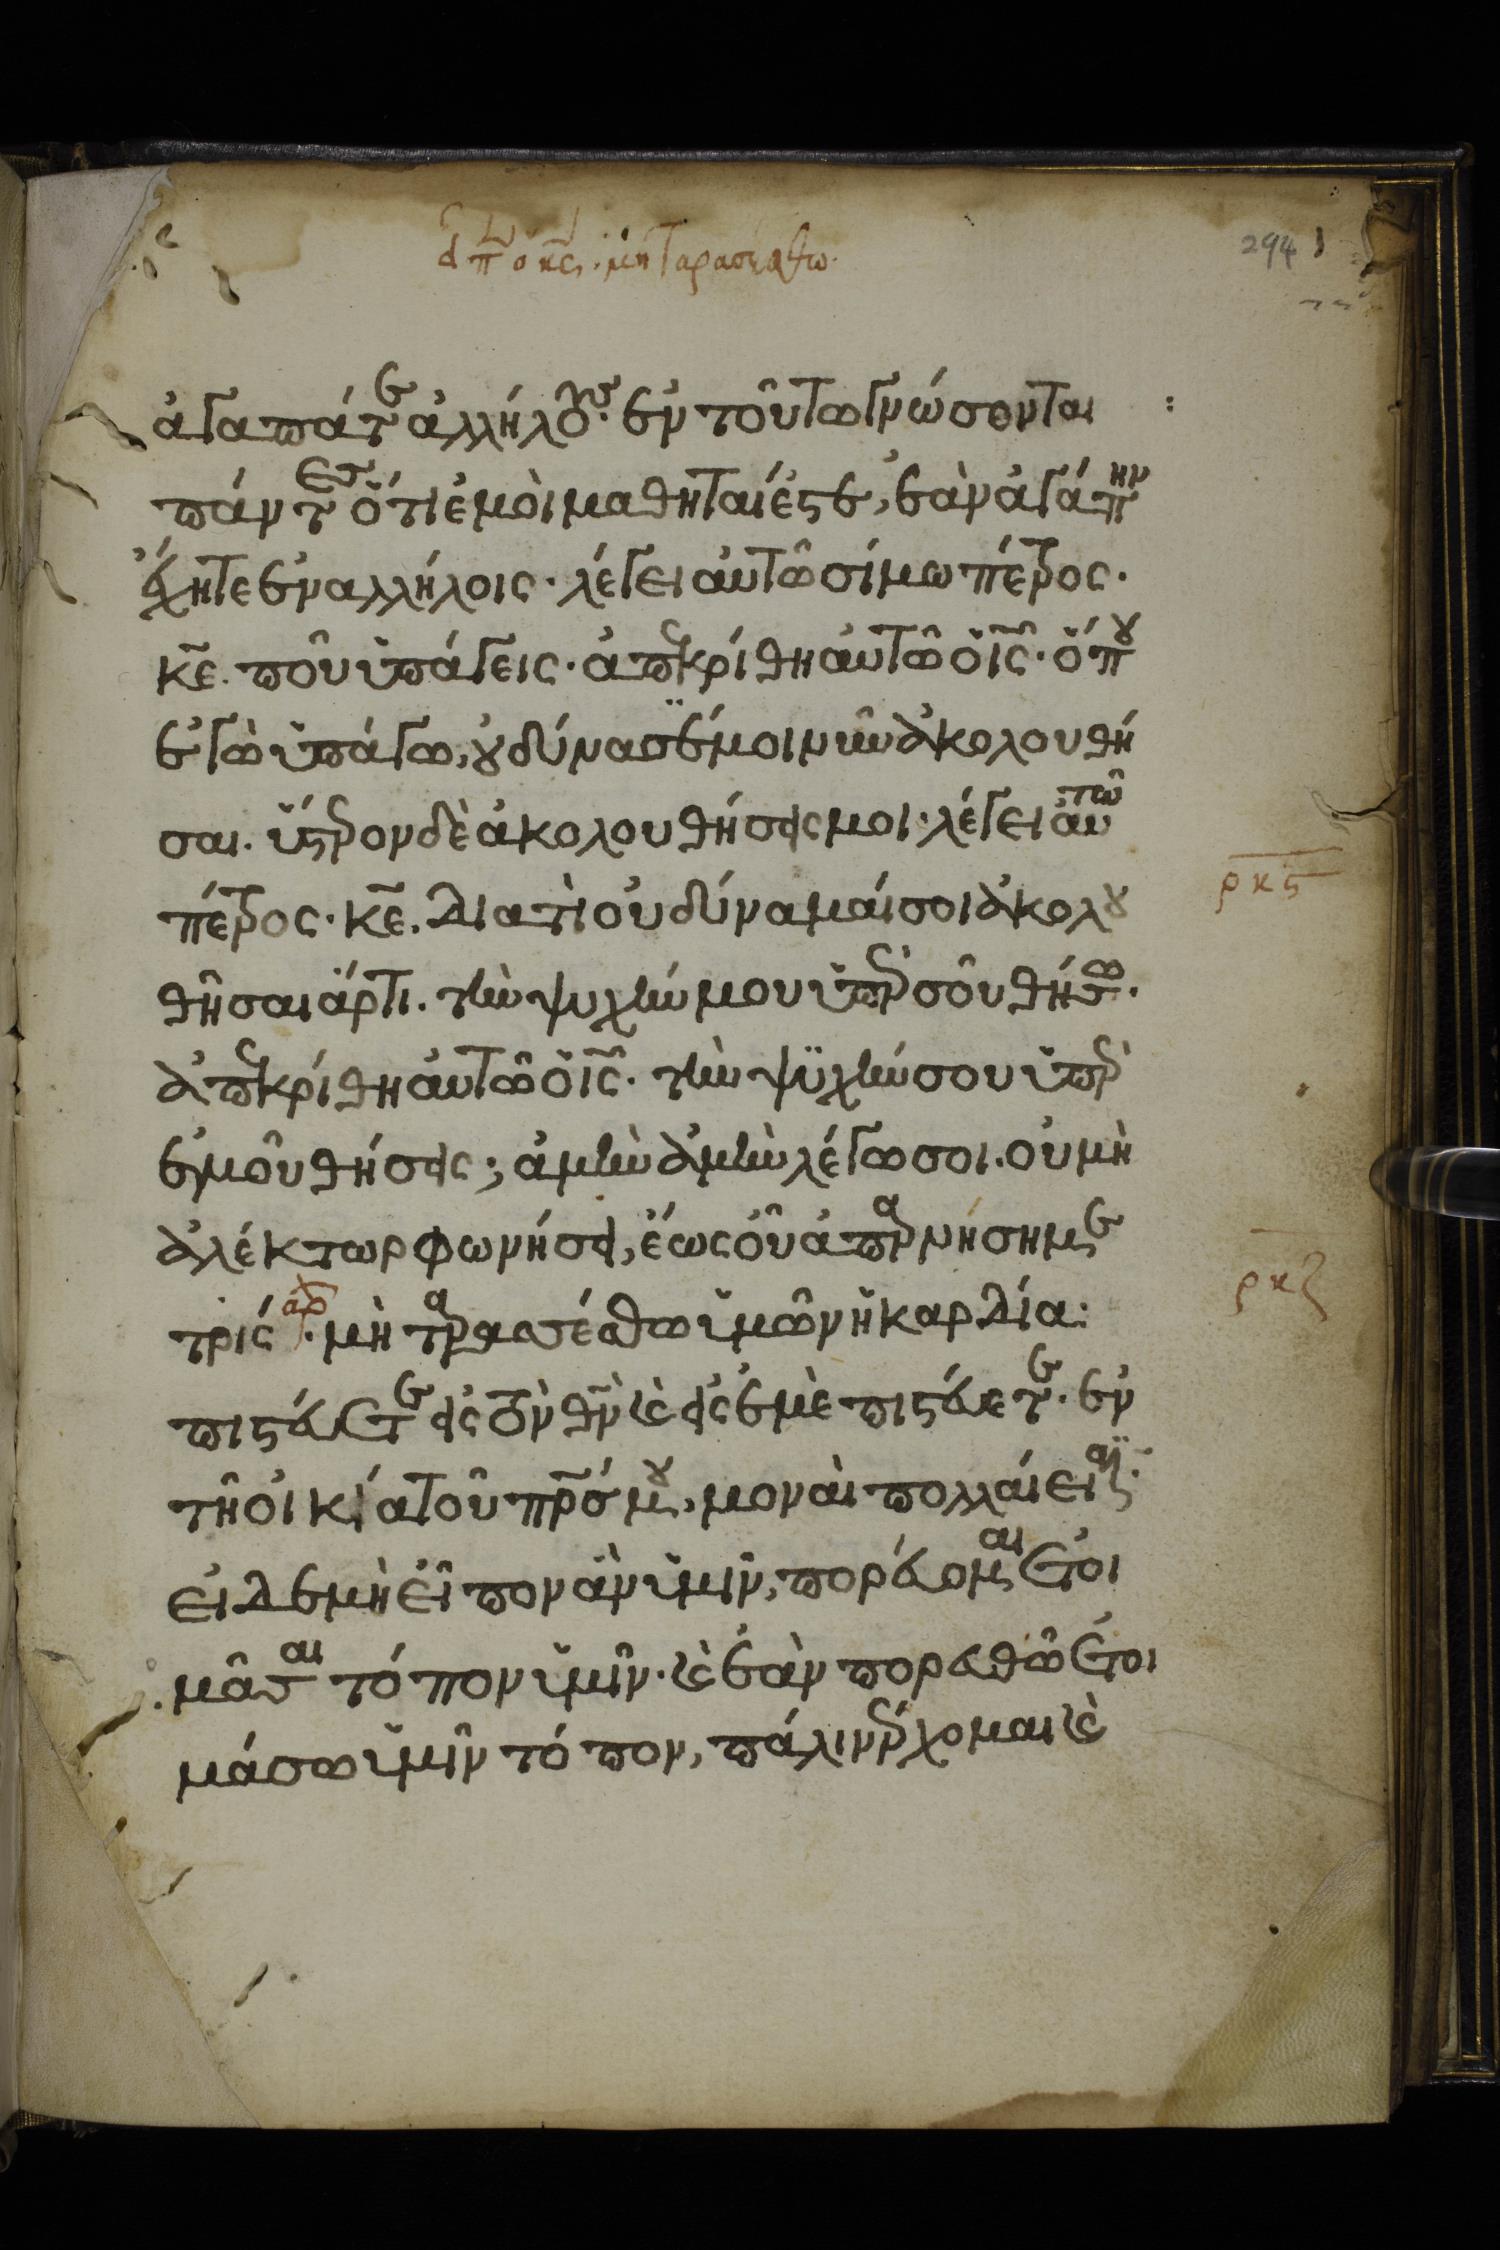 294
εἶπ ὁ κς. μὴ ταρασέσθω.
ἀγαπάτε ἀλλήλους. ἐν τούτω γνώσονται
πάντες ὅτι ἐμοὶ μαθηταί ἐστε, ἐὰν ἀγάπην
ἔχητε ἐν αλλήλοις. λέγει αὐτῶ σίμω πέτρος.
κε. ποῦ ὑπάγεις. ἀπεκρίθη αὐτῶ ὁ ἰς. ὅπου
ἐγὼ ὑπάγω, οὐ δύνασαί μοι νῦν ἀκολουθῆ
σαι. ὕστερον δὲ ἀκολουθήσεις μοι. λέγει αὐτῶ
πέτρος. κε. διατὶ οὐ δύναμαί σοι ἀκολου
θῆσαι ἄρτι. τὴν ψυχήν μου ὑπὲρ σοῦ θήσω.
ἀπεκρίθη αὐτῶ ὁ ἰς. τὴν ψϋχήν σου ὑπὲρ
ἐμοῦ θήσεις; ἀμὴν ἀμὴν λέγω σοι. οὐ μὴ
ἀλέκτωρ φωνήσει, ἕως οὗ ἀπαρνήση με
τρίς ἀρχ. μὴ ταρασσέσθω ὑμῶν ἡ καρδία:
πιστεύετε εἰς τὸν θν καὶ εἰς ἐμὲ πιστεύετε. ἐν
τῆ οἰκία τοῦ πρσ μου. μοναὶ πολλαί εἰσϊ.
εἰ δε μὴ εἶπον ἂν ὑμῖν, πορεύομαι ἑτοι
μᾶσαι τόπον ὑμῖν. καὶ ἐὰν πορευθῶ ἑτοι
μάσω ὑμῖν τόπον, πάλιν ἔρχομαι καὶ
ρκς
ρκζ